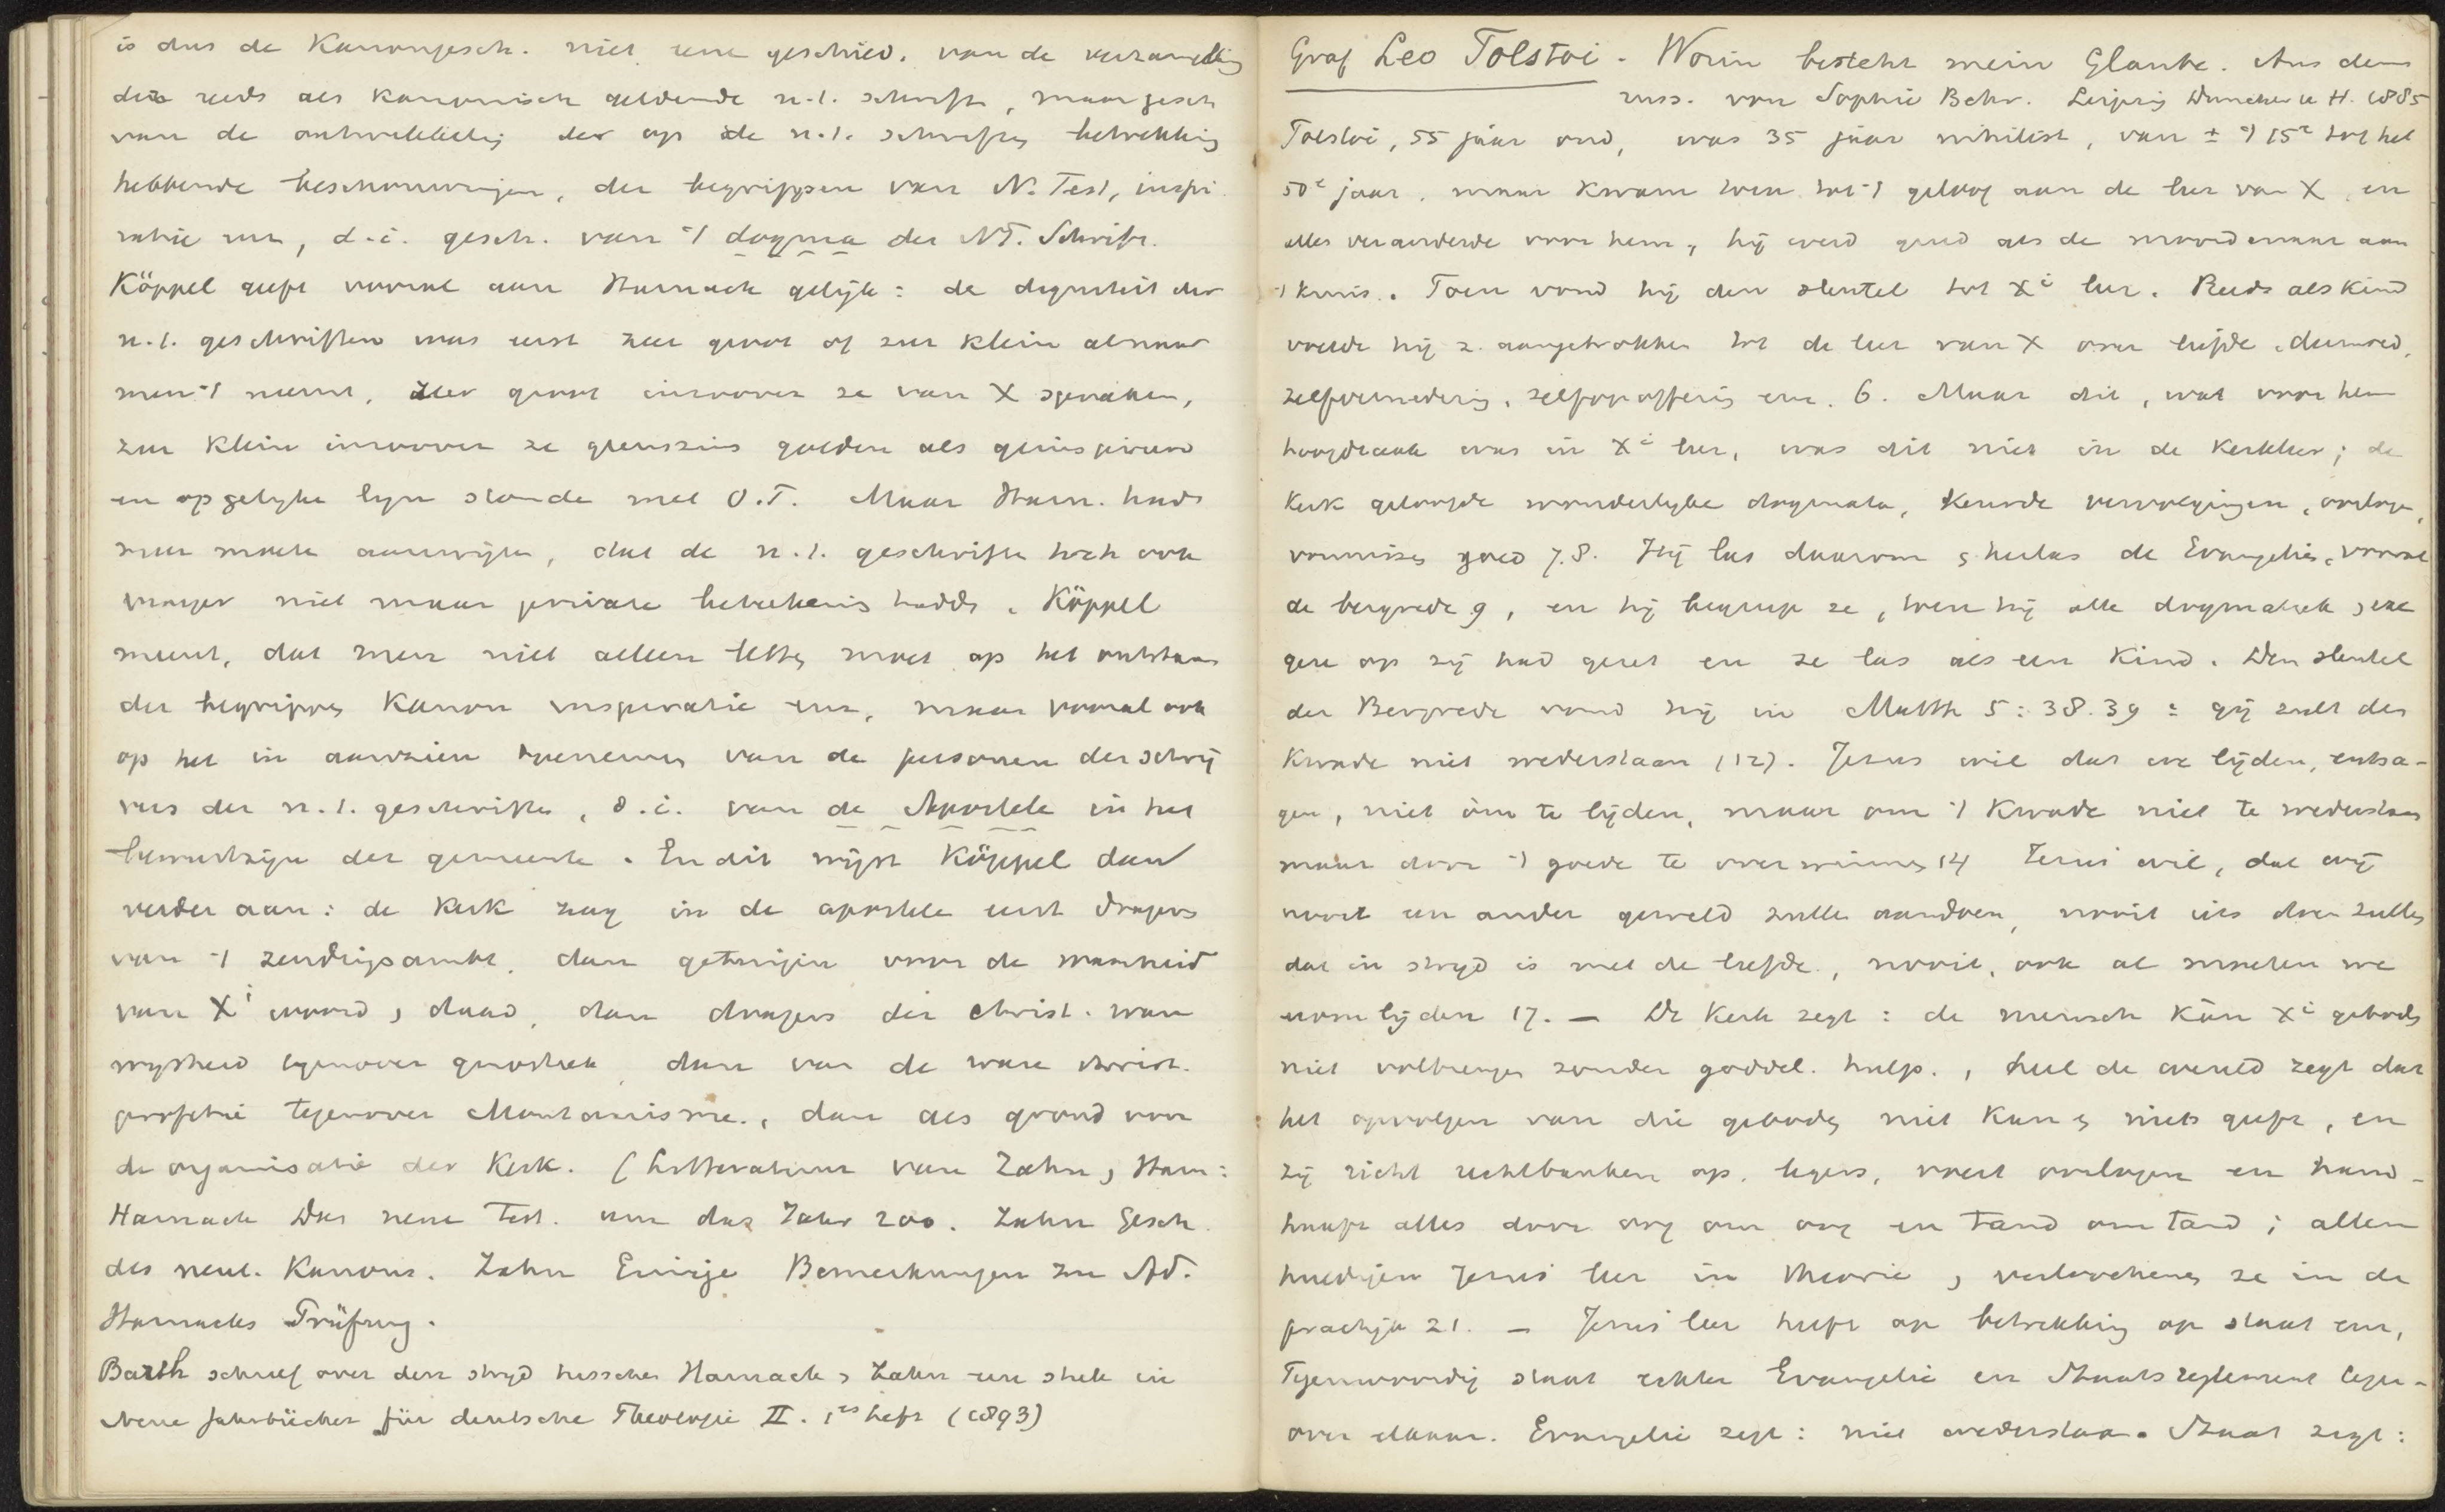 is dus de Kanongesch. niet eene geschied. van de verzameling
der reeds als Kanonisch geldende n.t. schrift, maar gesch
van de ontwikkeling der op de n.t. schriften betrekking
hebbende beschouwingen, der begrippen van N. Test, inspi
ratie enz, d.i. gesch. van 't dogma der NT. Schrift.
Köppel geeft vooral aan Harnack gelijk: de digniteit der
n.t. geschriften was eerst zeer groot of zeer klein al naar
men 't neemt, zeer groot inzoover ze van X spraken,
zeer klein inzoover ze geenszins golden als geinspireerd
en op gelyke lyn stonde met O.T. Maar Harn. had
meer moete aanwijzen, dat de n.t. geschrifte toch ook
vroeger niet maar private beteekenis hadde. Köppel
meent, dat men niet alleen letten moet op het ontstaan
der begrippen Kanon inspiratie enz, maar vooral ook
op het in aanzien toenemen van de personen der schrij
vers der n.t. geschriften, d.i. van de Apostele in het
bewustzijn der gemeente. En dit wijst Köppel dan
verder aan: de Kerk zag in de apostele eerst dragers
van 't zendingsambt, dan getuigen voor de waarheid
van Xi woord, daad, dan dragers der christ. ware
wysheid tegenover gnostiek, dan van de ware christ.
profetie tegenover Montanisme., dan als grond voor
de organisatie der Kerk. (Litteratuur van Zahn, Harn:
Harnack Das neue Test. um das Jahr 200. Zahn Gesch.
des neut. Kanons. Zahn Einige Bemerkungen zu Ad.
Harnacks Prüfung.
Barth schreef over den stryd tusschen Harnack, Zahn een stuk in
Neue Jahrbücher für deutsche Theologie II. 1es heft (1893)
Graf Leo Tolstoi - Worin besteht mein Glaube. Aus dem
russ. von Sophie Behr. Leipzig Duncker u H. 1885
Tolstoi, 55 jaar oud, was 35 jaar nihilist, van ± 't 15e tot het
50e jaar. maar kwam toen tot 't geloof aan de leer van X en
alles veranderde voor hem, hij werd gered als de moordenaar aan
't kruis. Toen vond hij den sleutel tot Xi leer. Reeds als Kind
voelde hij z. aangetrokken tot de leer van X over liefde, deemoed,
zelfvernedering, zelfopoffering enz. 6. Maar dit, wat voor hem
hoofdzaak was in Xi leer, was dit niet in de Kerkleer; de
Kerk geloofde wonderlyke dogmata, keurde vervolgingen, oorlogen,
vonnissen goed 7.8. Hij las daarom, herlas de Evangeliën, vooral
de bergrede 9, en hij begreep ze, toen hij alle dogmatiek, exe
gese op zij had gezet en ze las als een Kind. Den sleutel
der Bergrede vond hij in Matth 5:38.39: gij zult den
Kwade niet wederstaan (12). Jezus wil dat we lijden, ontza-
gen, niet óm te lijden, maar om 't Kwade niet te wederstaan
maar door 't goede te overwinnen 14 Jezus wil, dat wij
nooit een ander geweld zullen aandoen, nooit iets doen zullen
dat in stryd is met de liefde, nooit, ook al moeten we
erom lijden 17. — De Kerk zegt: de mensch kan Xi geboden
niet volbrengen zonder goddel. hulp., heel de wereld zegt dat
het opvolgen van die geboden niet kan, niets geeft, en
zij richt rechtbanken op, legers, voert oorlogen en hand-
haaft alles door oog om oog en tand om tand; allen
huldigen Jezus leer in theorie, verloochenen ze in de
practijk 21. — Jezus leer heeft ook betrekking op staat enz,
Tegenwoordig staat echter Evangelie en Staatsreglement tegen-
over elkaar. Evangelie zegt: niet wederstaan. Staat zegt: